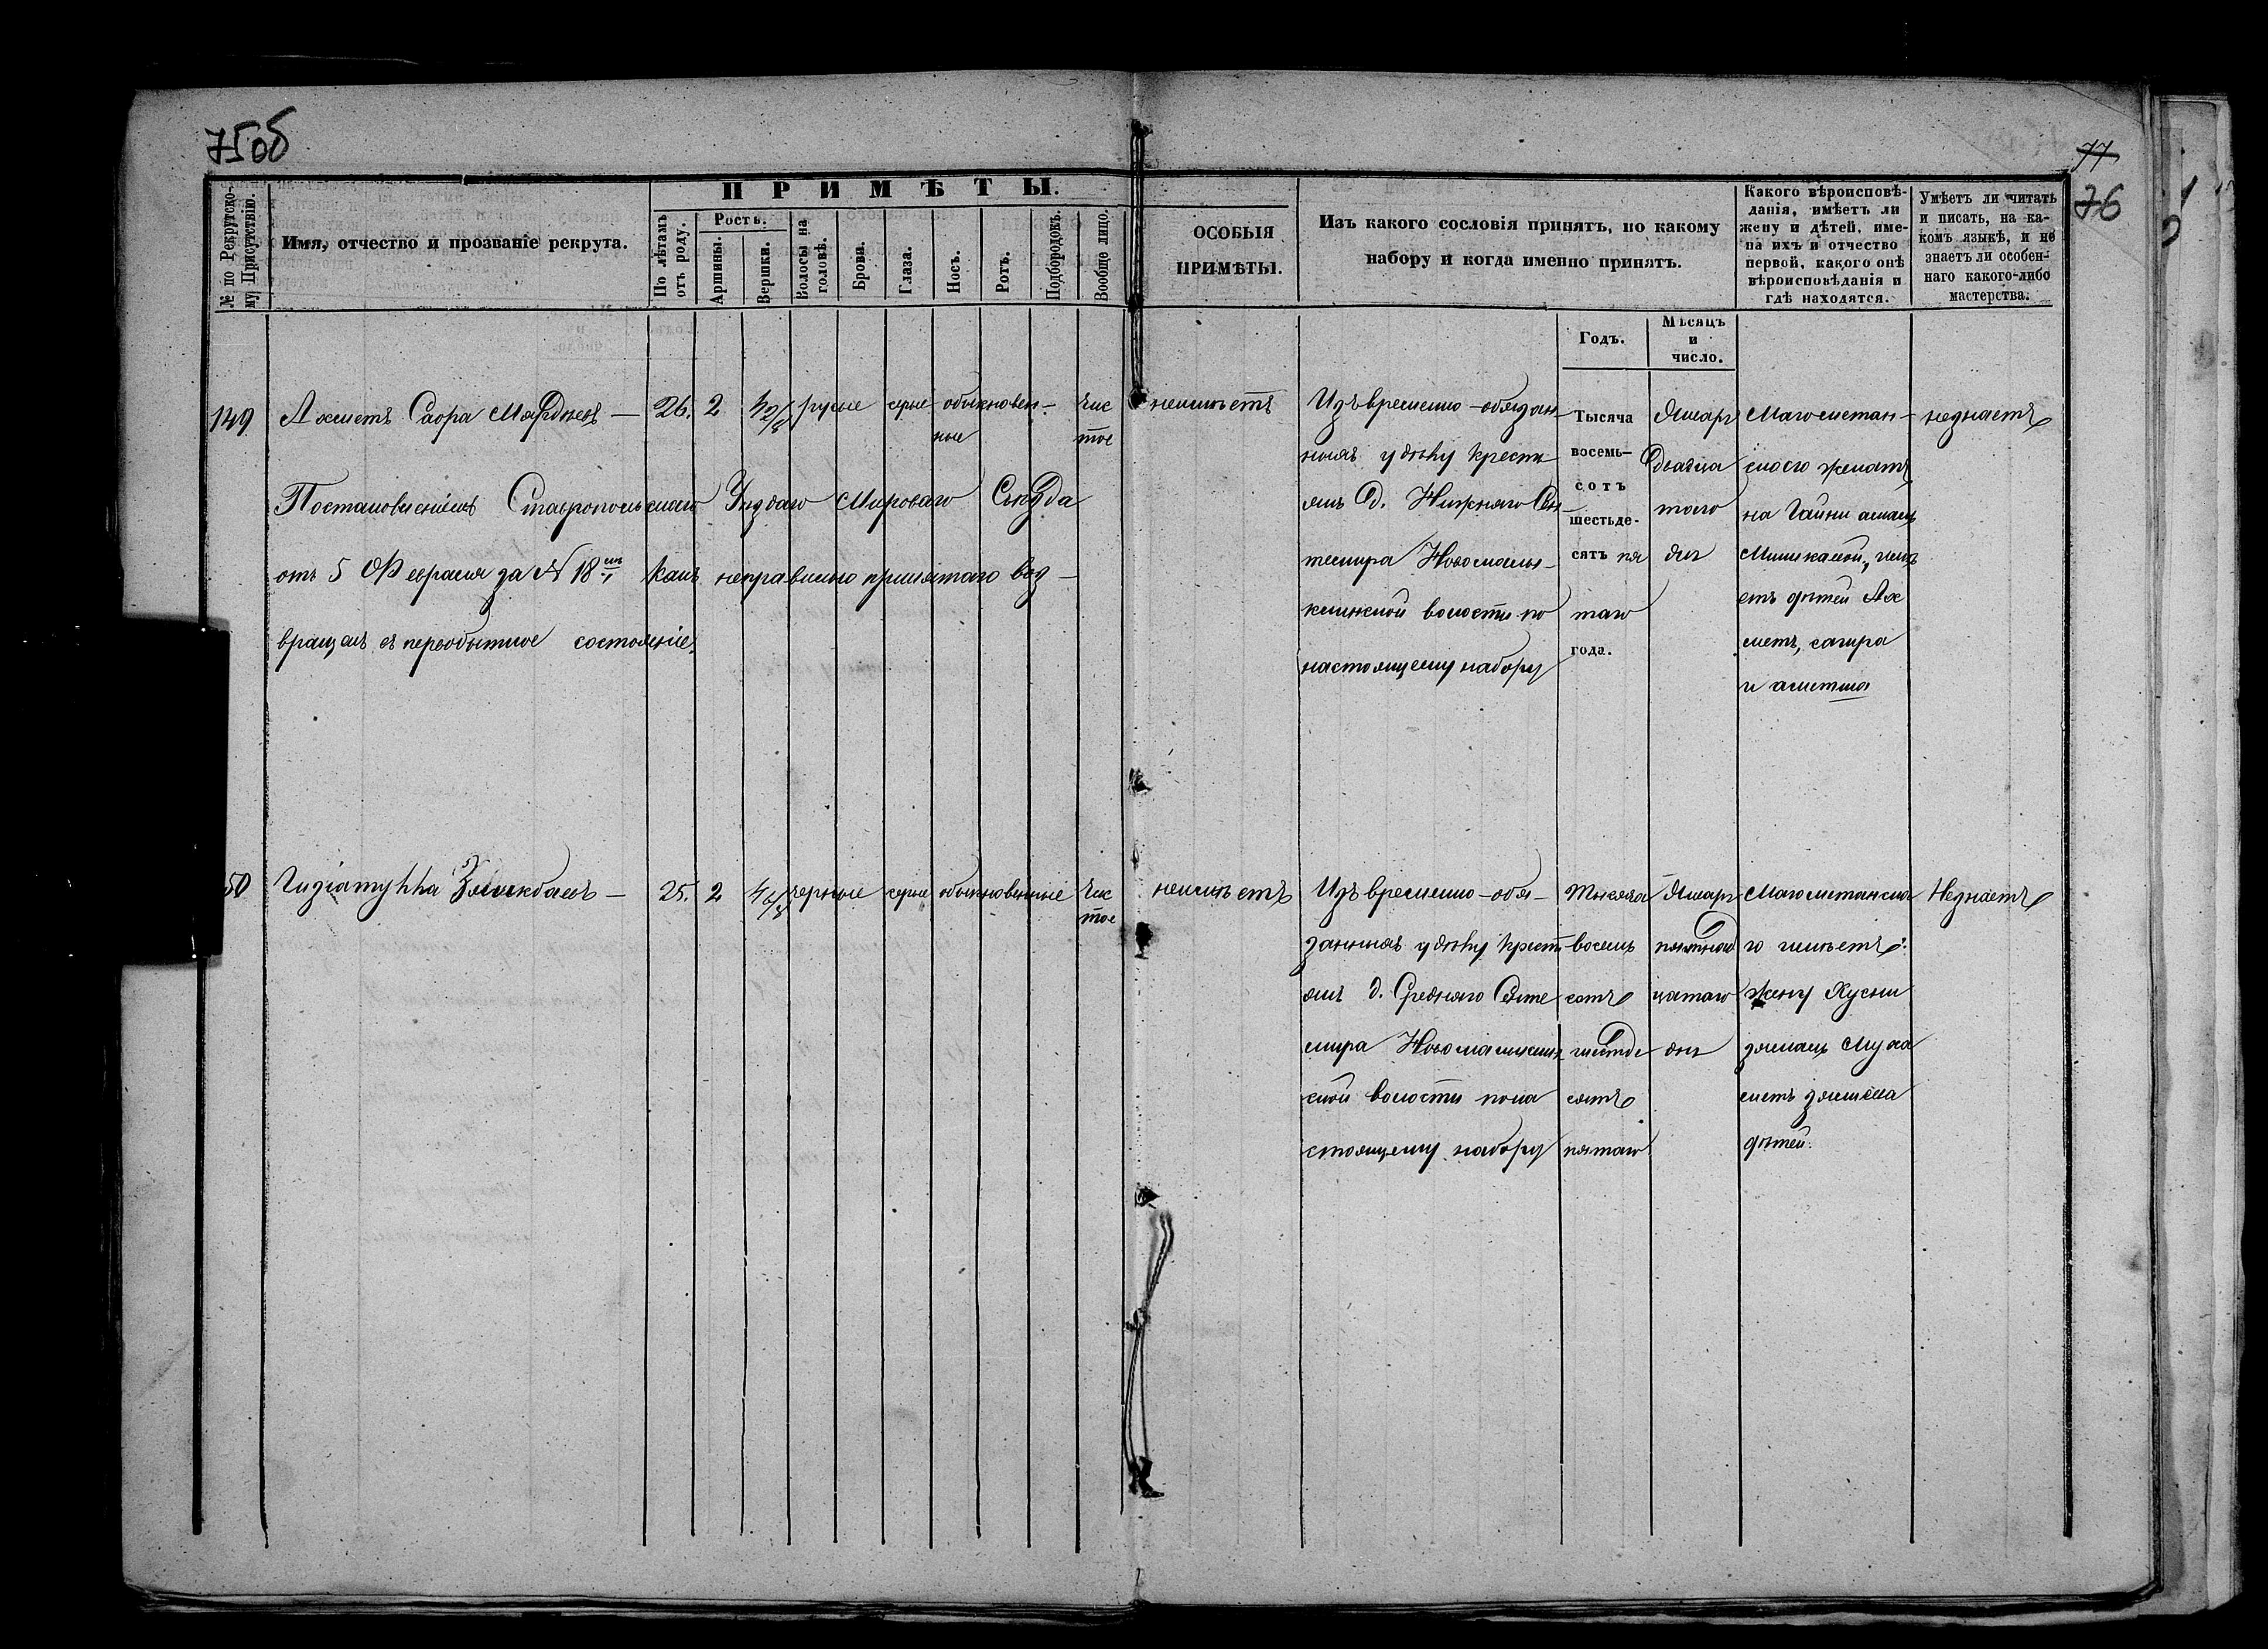 75об
77
76
ПРИМѢТЫ.
№ по Рекрутско-
му Присутствію.
Имя, отчество и прозваніе рекрута.
По лѣтамъ
отъ роду.
Ростъ.
Аршины.
Вершки.
Волосы на
головѣ.
Брови.
Глаза.
Носъ.
Ротъ.
Подбородокъ.
Вообще лицо.
ОСОБЫЯ
ПРИМѢТЫ.
Изъ какого сословія принятъ, по какому
набору и когда именно принятъ.
Годъ.
Мѣсяцъ
и
число.
Какого вѣроисповѣ-
данія, имѣетъ ли
жену и дѣтей, име-
на ихъ и отчество
первой, какого онѣ
вѣроисповѣданія и
гдѣ находятся.
Умѣетъ ли читать
и писать, на ка-
комъ языкѣ, и не
знаетъ ли особен-
наго какого-либо
мастерства.
149
Ахметъ Сафа —
26. 2 4 2/8 русые серые обыкновен-
ные
Чис
тое
неимѣетъ
Постановленіемъ Ставропольскаго Уѣзднаго Мироваго Съѣзда
отъ 5 Февраля за № 18 какъ неправильно принятаго воз-
вращенъ въ первобытное состояніе.
Изъ временно-обязан
ныхъ удѣлу крестья
янъ д. Нижняго Сан
темира Новомалы-
клинской волости по
настоящему набору
Тысяча
восемь-
сотъ
шестьде-
сятъ пя
таго
года.
Январ
Двадца
таго
дня
Магометан-
скаго женатъ
на
имѣ
етъ дѣтей Ах
метъ, сагира
и
незнаетъ
50
Гизіатулла —
25. 2 4 черные серые обыкновенные
Чис
тое
неимѣетъ
Изъ временно-обя-
занныхъ удѣлу крест
янъ д. Средняго Санте
мира Новомалыклин
ской волости пона
стоящему набору
Тысяча
восемь
сотъ
шестьде
сятъ
пятаго
Январ
пятнад
цатаго
дня
Магометанска
го имѣетъ:
жену Хусни
дѣтей.
Незнаетъ